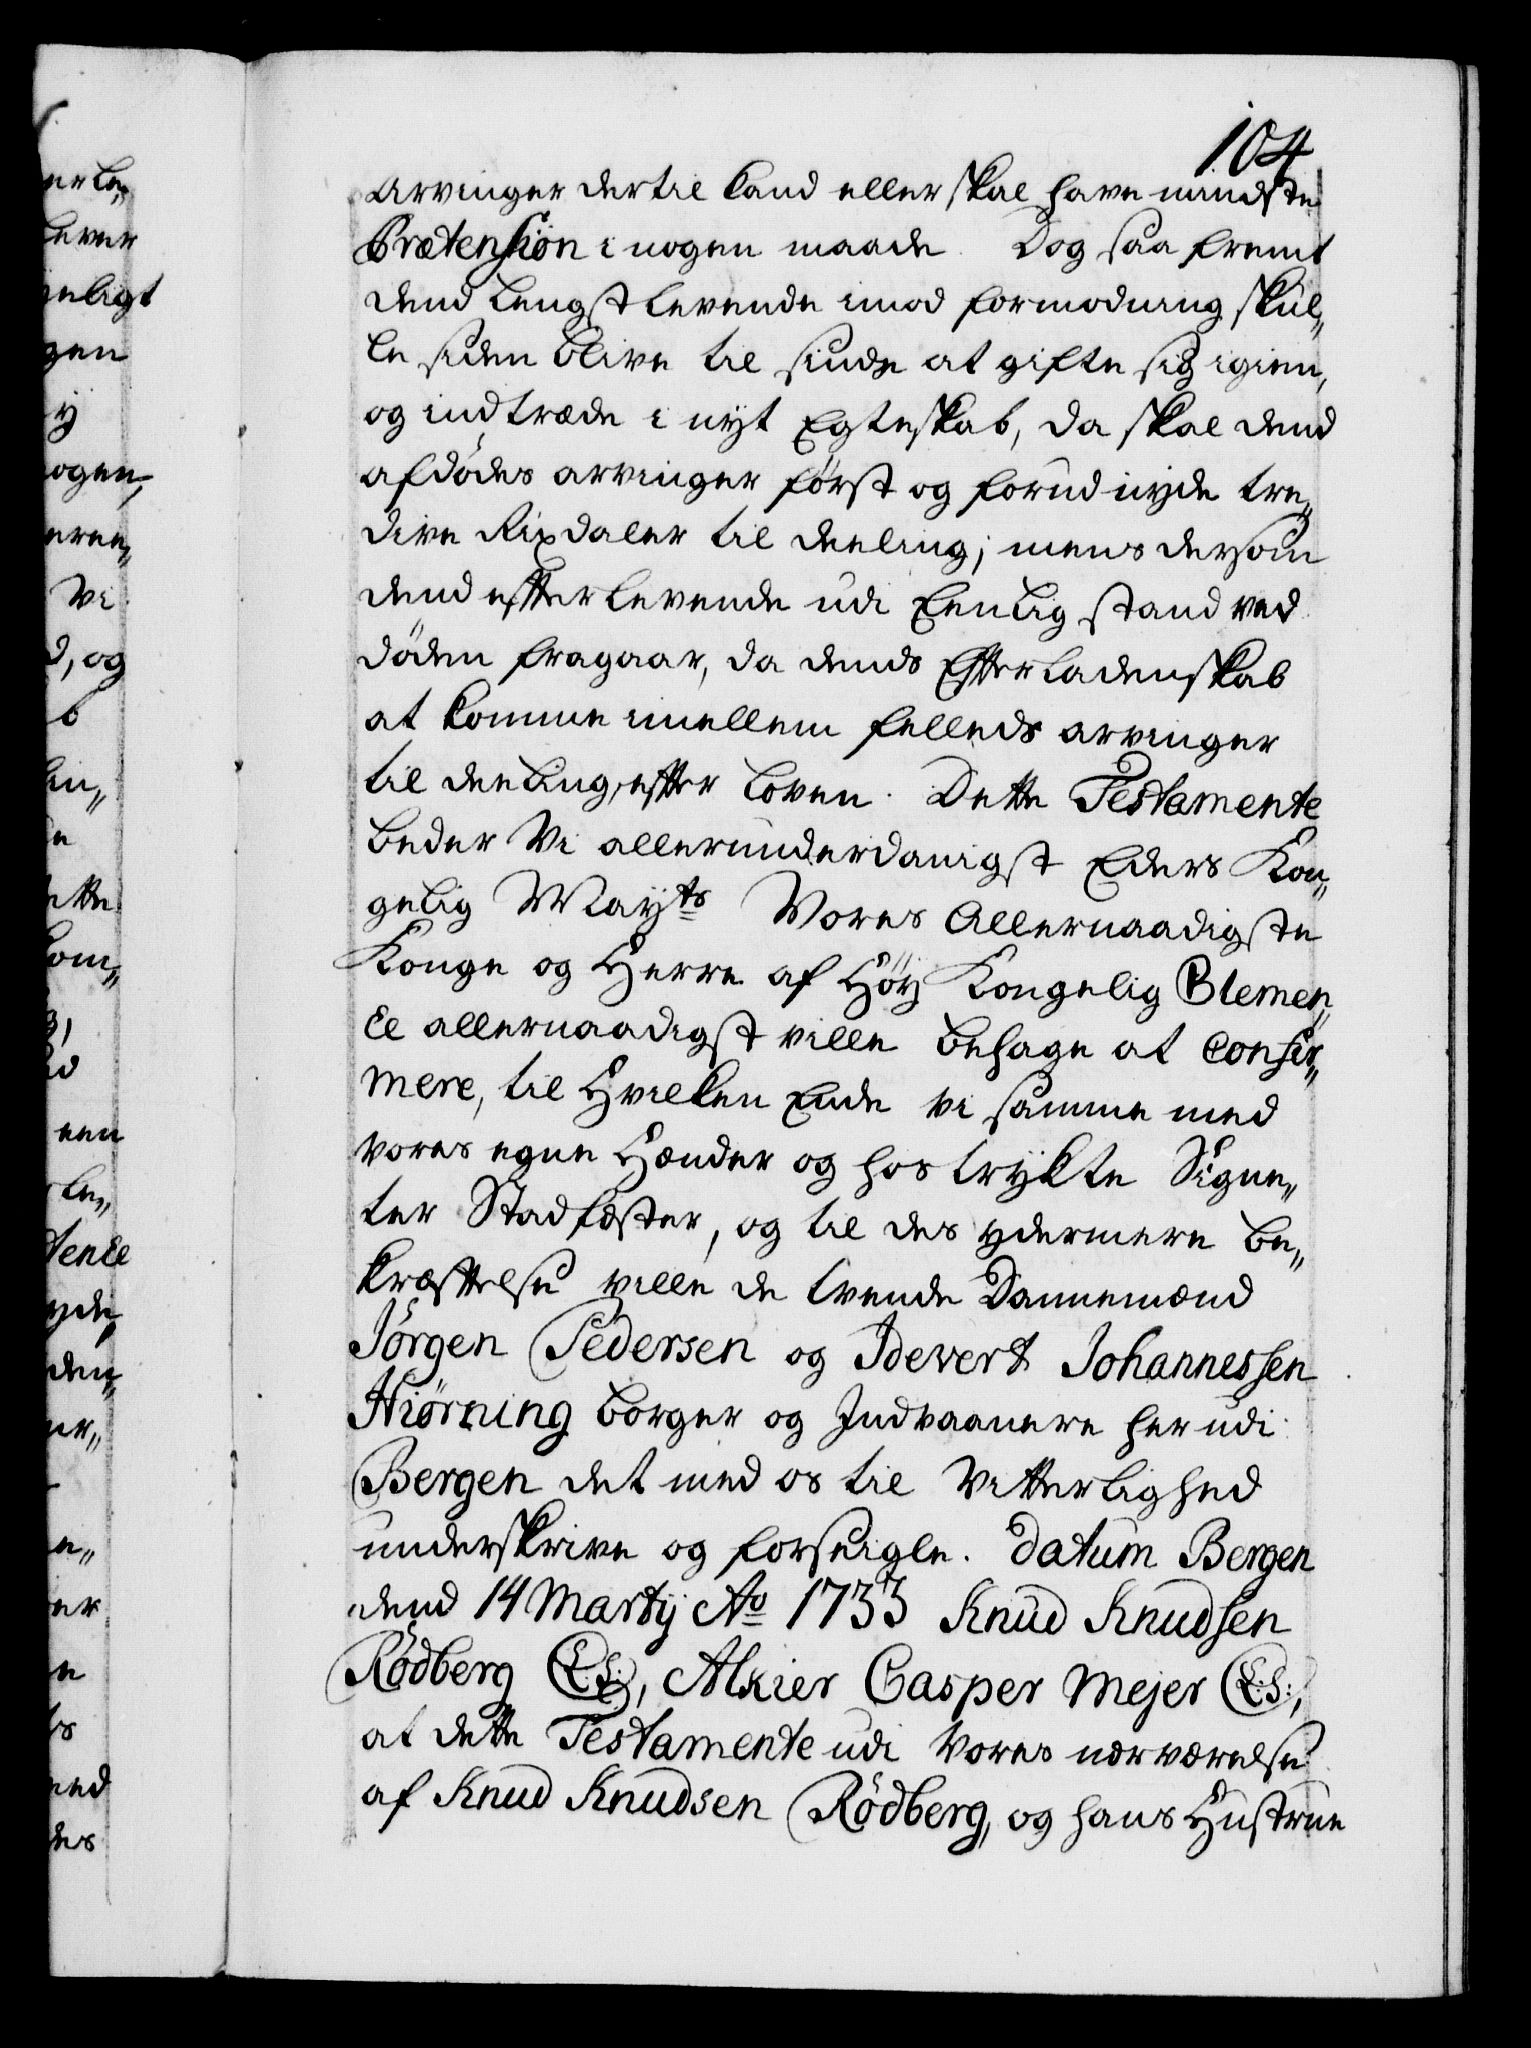 104
Arvinger dertil kand eller skal have mindste
Prætension i nogen maade. Dog saa fremt
dend lengstlevende imod formodning skul„
le siden blive til sinds at gifte sig igien,
og indtræde i nyt Egteskab, da skal dend
afdødes arvinger først og forud nyde tre„
dive Rixdaler til deeling; mens dersom
dend efterlevende udi Eenlig stand ved
døden fragaar, da dends Efterladenskab
at komme imellem felleds arvinger
til deeling, efter loven. Dette Testamente
beder Vi allerunderdanigst Eders Kon„
gelig Mayts Vores Allernaadigste
Konge og Herre af Høy Kongelig Clemen„
ce allernaadigst ville behage at confir„
mere, til Hvilken Ende vi samme med
vores egne Hænder og hostrykte Signe„
ter Stadfæster, og til des ydermere be„
kræftelse ville de tvende Dannemænd
Jörgen Pedersen og Idevert Johannessen
Hiörning borger og Indvaanere her udi
Bergen det med os til Vitterlighed
underskrive og forseigle. Datum Bergen
dend 14 Martij Ao 1733 Knud Knudsen
Rödberg (L.S.), Alkier Casper Mejer (L.S.),
at dette Testamente udi Vores nærværelse
af Knud Knudsen Rödberg, og hans Hustrue